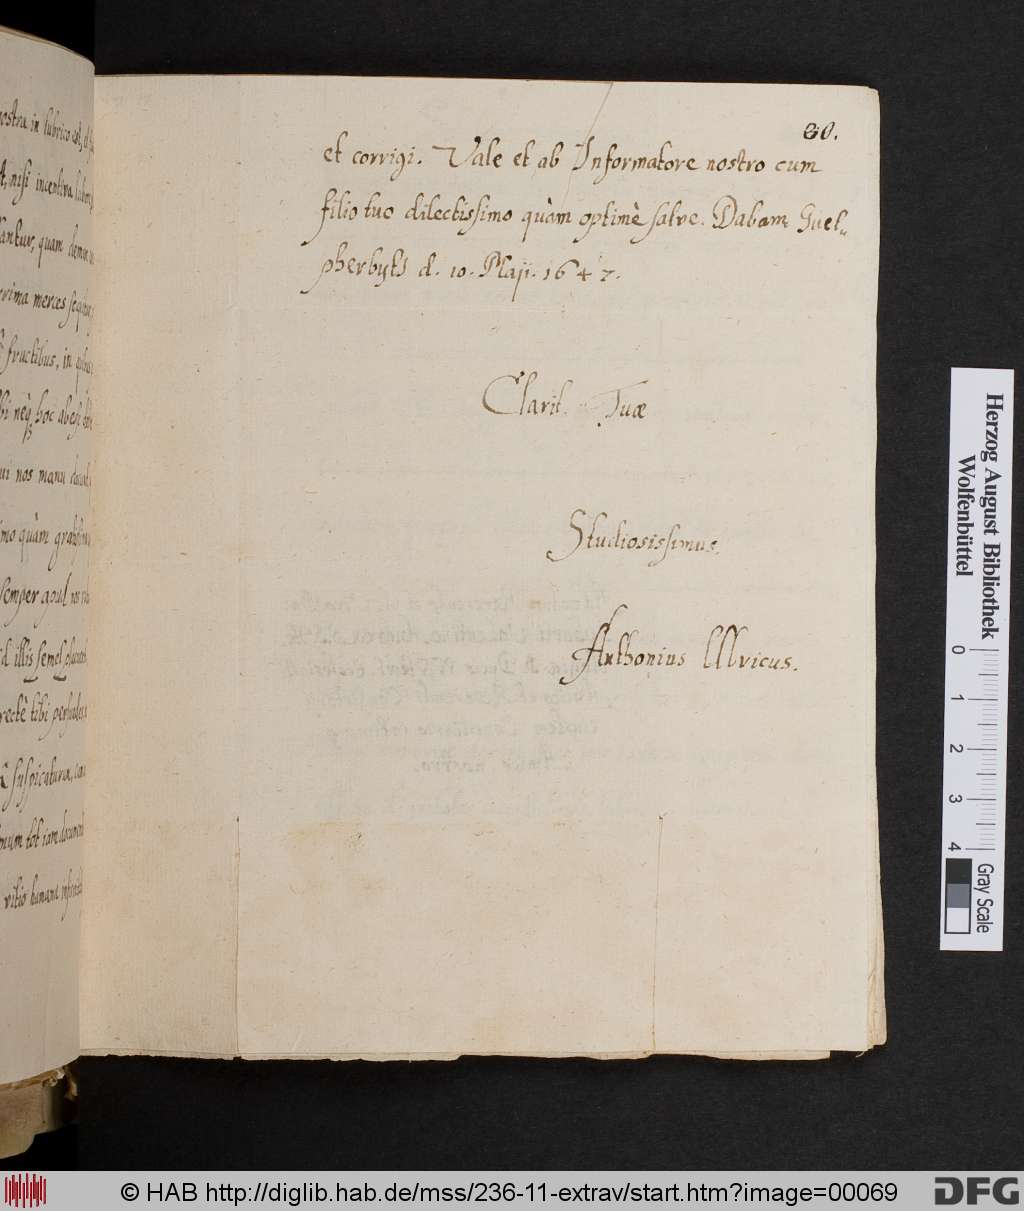 nostra in lubrico est, et
nisi incentiva
antur, quam
prima merces
fructibus, in
neq hoc abesse
ui nos manu
imo quàm
semper
id illis semel
rectè tibi
suspicatura,
tot iam
vitio humana
80.
et corrigi. Vale et ab Informatore nostro cum
filio tuo dilectissimo quàm optimè salve. Dabam Guel-
pherbyti d. 10. Maji. 1647.
Clarit. Tuæ
Studiosissimus.
Anthonius Ulricus.
Herzog August Bibliothek
Wolfenbüttel
0 1 2 3 4
Gray Scale
© HAB http://diglib.hab.de/mss/236-11-extrav/start.htm?image=00069
DFG